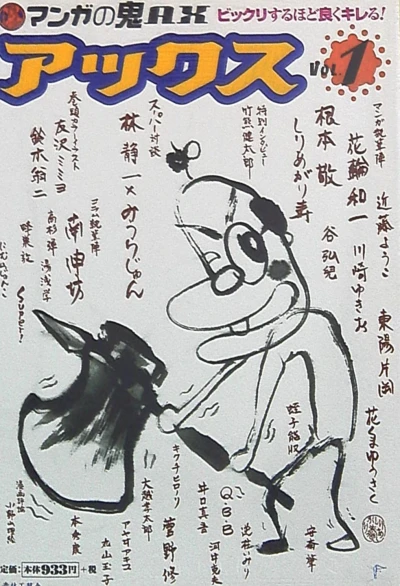 マンガの鬼AX
ビックリするほど良くキレる!
アックス
Vol.1
マンガ執筆陣
近藤ようこ
東陽片岡
花くまゆうさく
花輪和一
川崎ゆきお
根本敬
谷弘兒
しりあがり寿
特別インタビュー
竹熊健太郎
スーパー対談
林静一×みうらじゅん
コラム執筆陣
南伸坊
巻頭カラーイラスト
友沢ミミヨ
鈴木翁二
高杉弾
湯浅学
Super!
蛭子能収
安斎肇
Q.B.B
逆柱いみり
河井克夫
井口真吾
キクチヒロノリ
菅野修
大越孝太郎
アヤ井アキコ
丸山玉子
本秀康
漫画評論
定価:本体933円+税